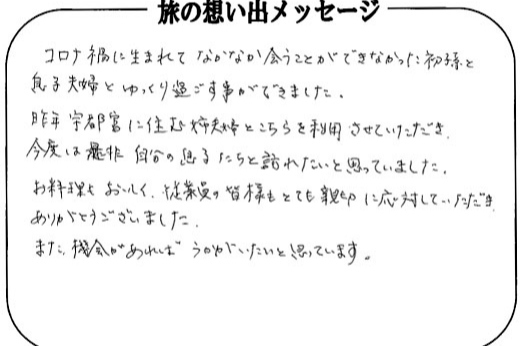 旅の想い出メッセージ
コロナ禍に生まれて なかなか会うことができなかった初孫と
息子夫婦とゆっくり過ごす事ができました。
昨年 宇都宮に住む姉夫婦とこちらを利用させていただき、
今度は是非 自分の息子たちと訪れたいと思っていました。
お料理もおいしく、従業員の皆様もとても親切に応対していただき
ありがとうございました。
また、機会があれば うかがいたいと思っています。